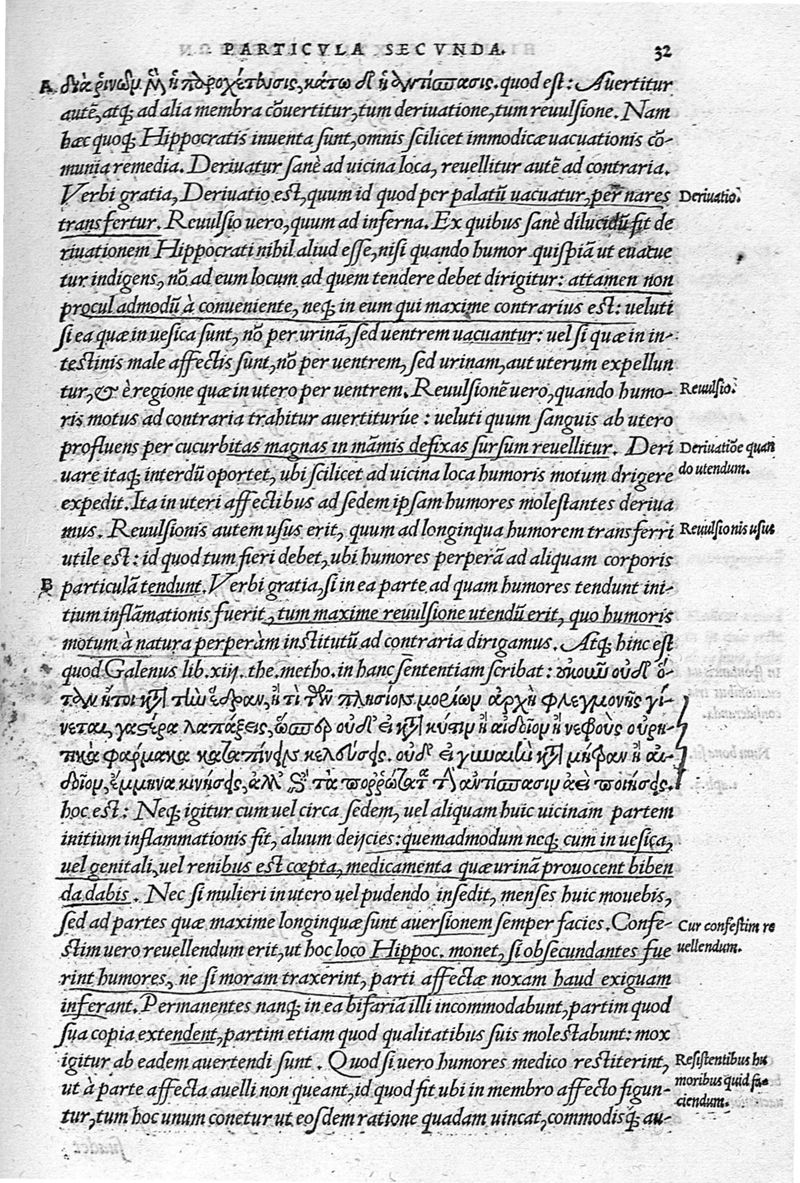 PARTICVLA SECVNDA. 32
A διὰ ῥινῶν μὲν ἡ παροχέτευσις, κάτω δὲ ἡ ἀντίσπασις. quod est: Auertitur
autē, atq; ad alia membra cōuertitur, tum deriuatione, tum reuulsione. Nam
hæc quoq; Hippocratis inuenta sunt, omnis scilicet immodicæ uacuationis cō-
munia remedia. Deriuatur sanè ad uicina loca, reuellitur autē ad contraria.
Verbi gratia, Deriuatio est, quum id quod per palatū uacuatur, per nares
Deriuatio.
transfertur. Reuulsio uero, quum ad inferna. Ex quibus sanè dilucidū fit de
riuationem Hippocrati nihil aliud esse, nisi quando humor quispiā ut euacue
tur indigens, nō ad eum locum ad quem tendere debet dirigitur: attamen non
procul admodū à conueniente, neq; in eum qui maxime contrarius est: ueluti
si ea quæ in uesica sunt, nō per urinā, sed uentrem uacuantur: uel si quæ in in-
testinis male affectis sunt, nō per uentrem, sed urinam, aut uterum expellun
tur, & è regione quæ in utero per uentrem. Reuulsionē uero, quando humo-
Reuulsio.
ris motus ad contraria trahitur auertiturúe: ueluti quum sanguis ab utero
profluens per cucurbitas magnas in māmis defixas sursum reuellitur. Deri
Deriuatiōe quan
uare itaq; interdū oportet, ubi scilicet ad uicina loca humoris motum drigere
do utendum.
expedit. Ita in uteri affectibus ad sedem ipsam humores molestantes deriua
mus. Reuulsionis autem usus erit, quum ad longinqua humorem transferri
Reuulsionis usus
utile est: id quod tum fieri debet, ubi humores perperā ad aliquam corporis
B particulā tendunt. Verbi gratia, si in ea parte ad quam humores tendunt ini-
tium inflāmationis fuerit, tum maxime reuulsione utendū erit, quo humoris
motum à natura perperàm institutū ad contraria dirigamus. Atq; hinc est
quod Galenus lib. xiij. the. metho. in hanc sententiam scribat: οὔκουν οὐδὲ ὅ-
ταν ἤτοι κατὰ τὴν ἕδραν, ἤ τι τῶν πλησίον μορίων ἀρχὴ φλεγμονῆς γί-
νεται, γαστέρα λαπάξεις, ὥσπερ οὐδὲ εἰ κατὰ κύστιν ἢ αἰδοῖον ἢ νεφροὺς οὐρη-
τικὰ φάρμακα καταπίνειν κελεύσεις. οὐδὲ εἰ γυναικῶν κατὰ μήτραν ἢ αἰ-
δοῖον, ἔμμηνα κινήσεις, ἀλλ' εἰς τὰ πορρωτάτω τὴν ἀντίσπασιν ἀεὶ ποιήσεις.
hoc est: Neq; igitur cum uel circa sedem, uel aliquam huic uicinam partem
initium inflammationis fit, aluum deijcies: quemadmodum neq; cum in uesica,
uel genitali, uel renibus est cœpta, medicamenta quæ urinā prouocent biben
da dabis. Nec si mulieri in utero uel pudendo insedit, menses huic mouebis,
sed ad partes quæ maxime longinquæ sunt auersionem semper facies. Confe-
Cur confestim re
stim uero reuellendum erit, ut hoc loco Hippoc. monet, si obsecundantes fue
uellendum.
rint humores, ne si moram traxerint, parti affectæ noxam haud exiguam
inferant. Permanentes nanq; in ea bifariā illi incommodabunt, partim quod
sua copia extendent, partim etiam quod qualitatibus suis molestabunt: mox
igitur ab eadem auertendi sunt. Quod si uero humores medico restiterint,
Resistentibus hu
ut à parte affecta auelli non queant, id quod fit ubi in membro affecto figun-
moribus quid fa
ciendum.
tur, tum hoc unum conetur ut eosdem ratione quadam uincat, commodisq; au-